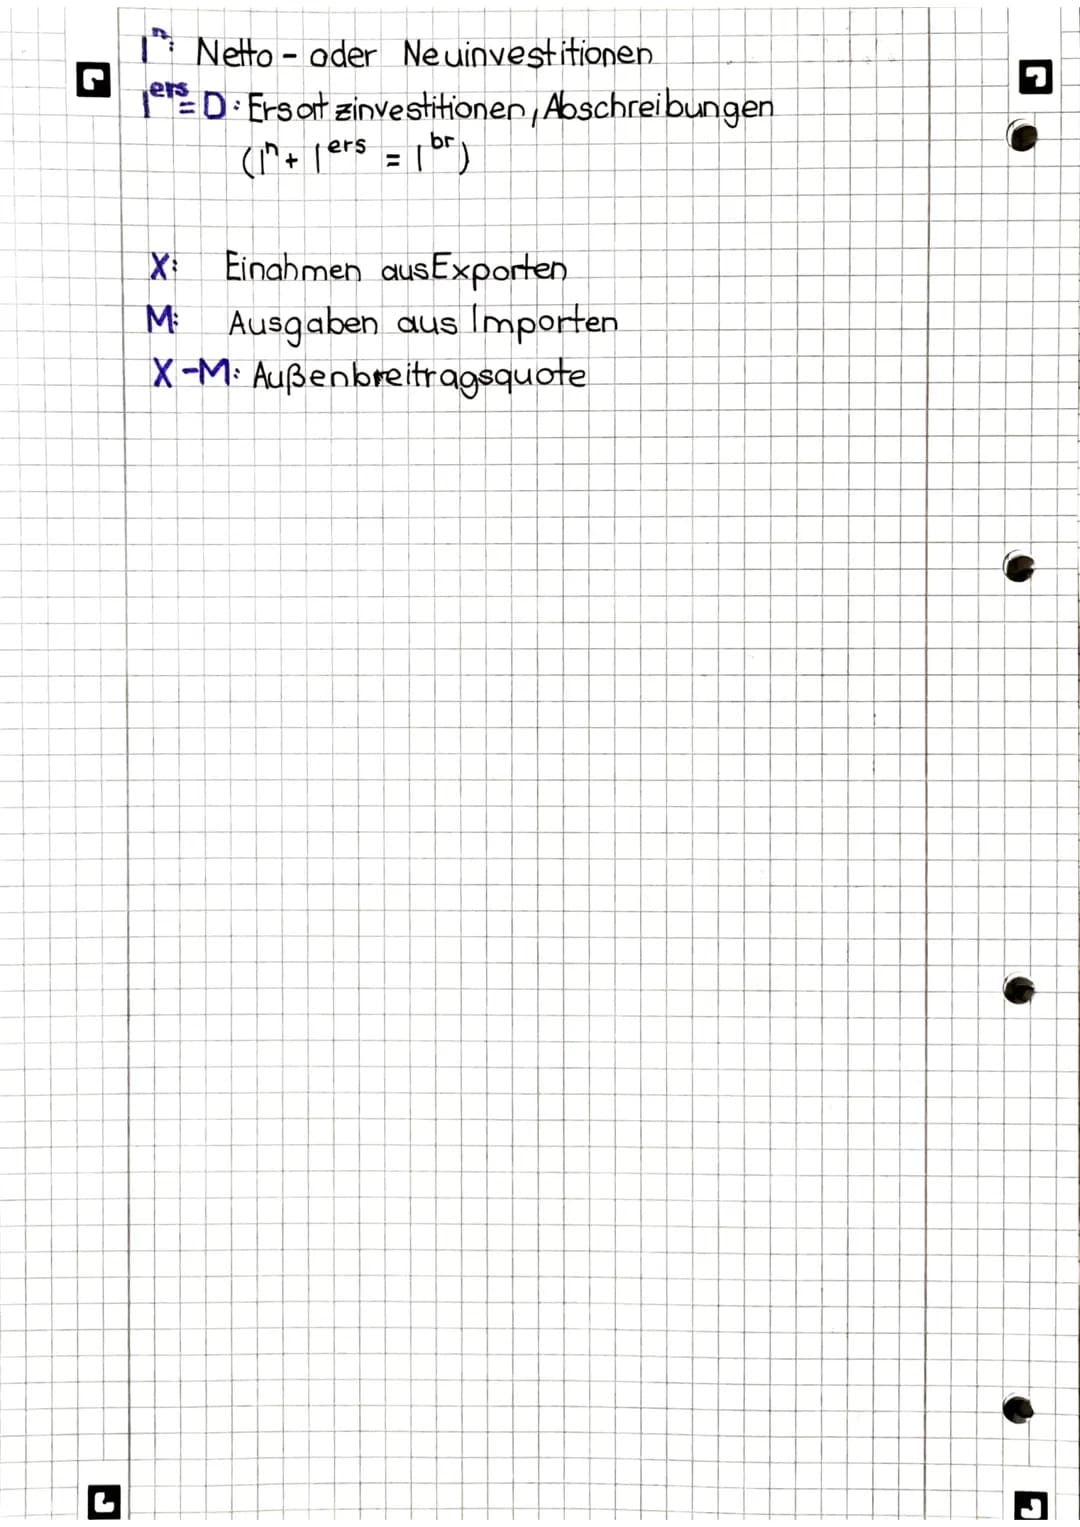 Iⁿ: Netto - oder Neuinvestitionen
Iᵉʳˢ = D: Ersatzinvestitionen, Abschreibungen
(Iⁿ + Iᵉʳˢ = Iᵇʳ)
X: Einahmen aus Exporten
M: Ausgaben aus Importen
X-M: Außenbreitragsquote